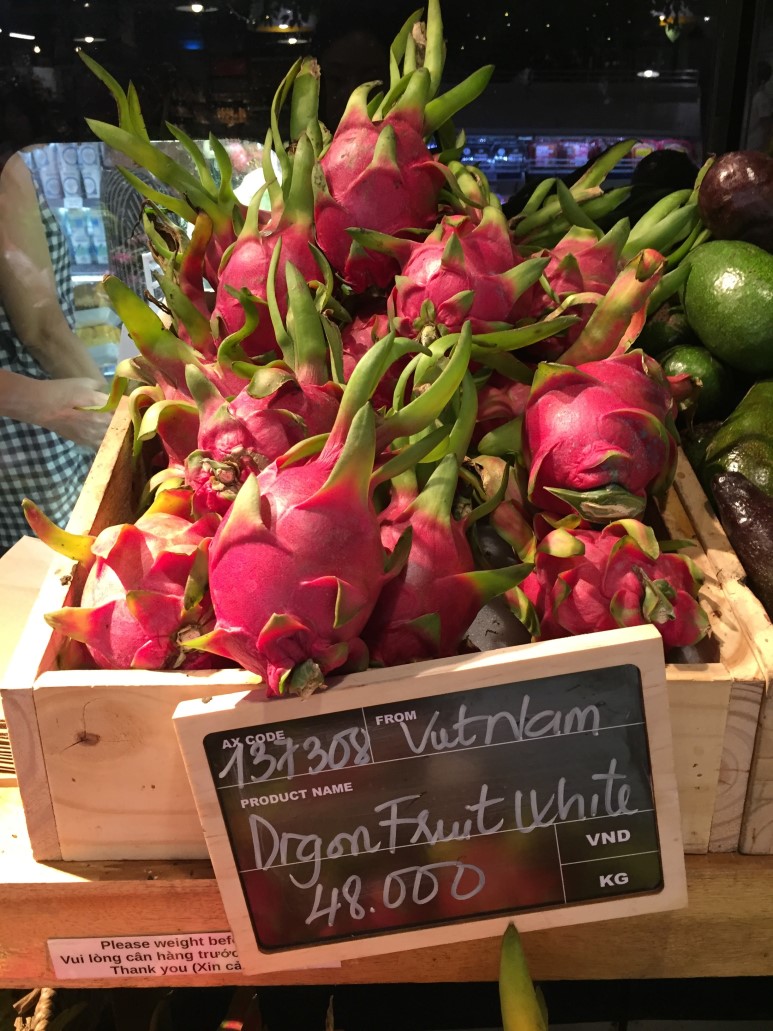 AX CODE FROM
137308 VutNam
PRODUCT NAME
Drgon Fruit White
48.000 VND
KG
Please weight bef
Vui lòng cân hàng trước
Thank you (Xin cả